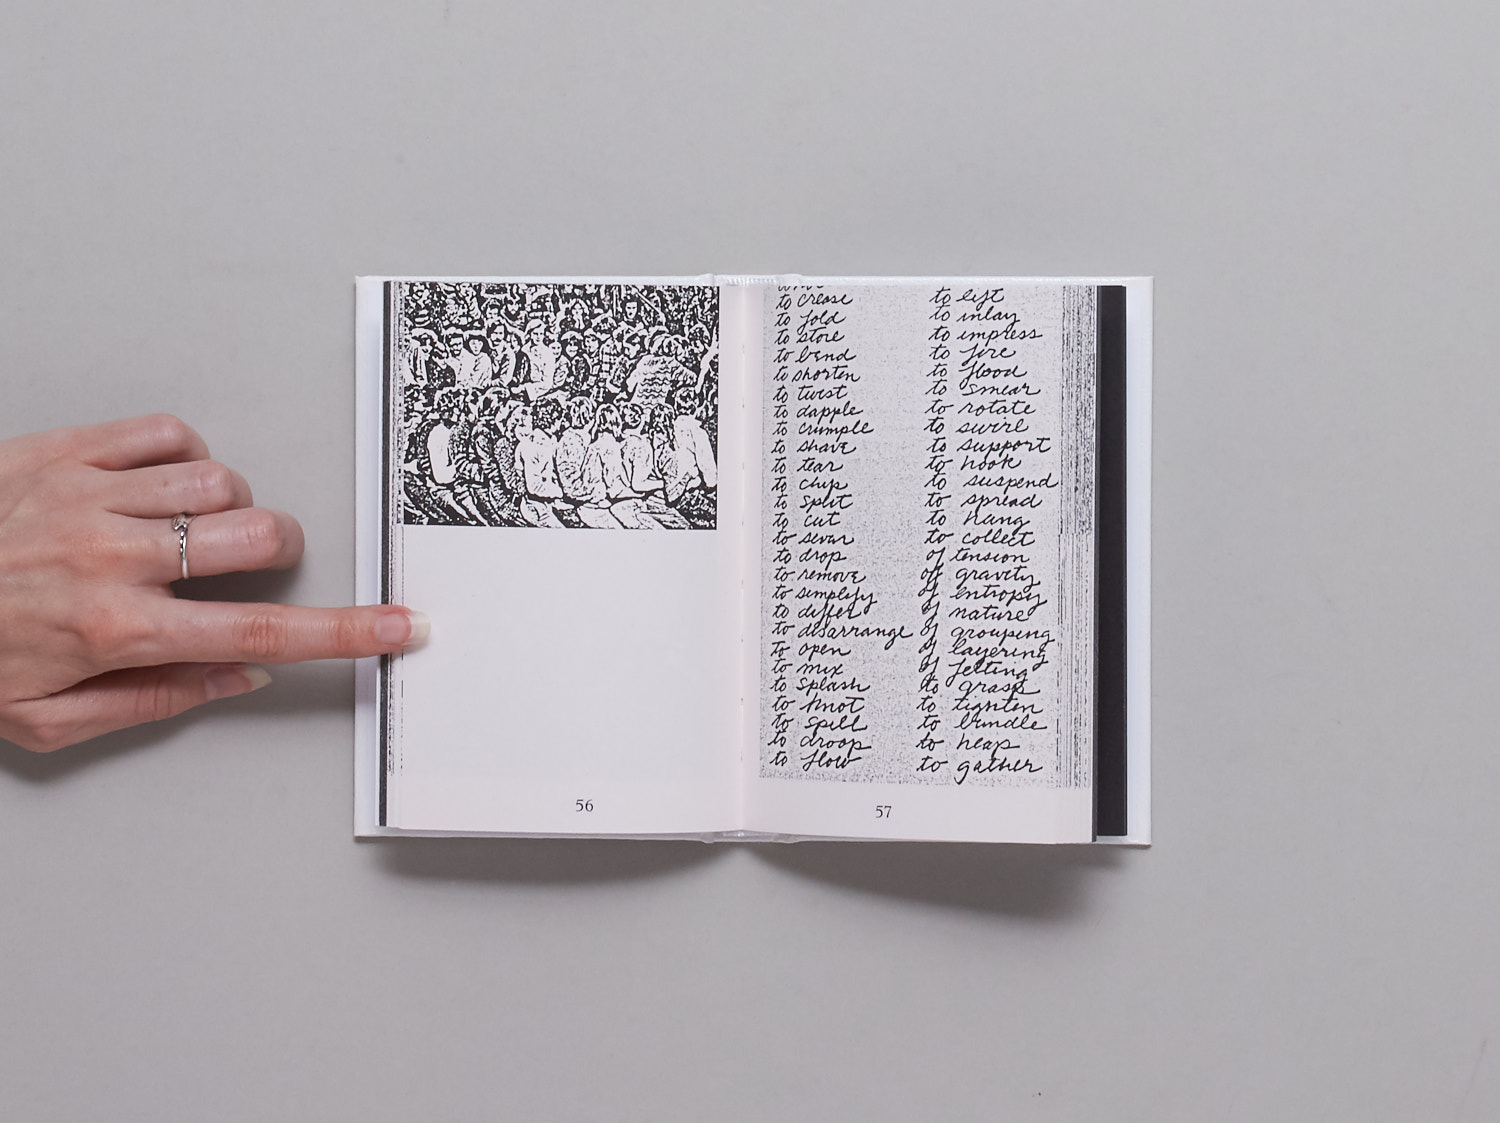 56
to crease
to fold
to store
to bend
to shorten
to twist
to dapple
to crumple
to shave
to tear
to chip
to split
to cut
to sever
to drop
to remove
to simplify
to differ
to disarrange
to open
to mix
to splash
to knot
to spill
to droop
to flow
to lift
to inlay
to impress
to fire
to flood
to smear
to rotate
to swirl
to support
to hook
to suspend
to spread
to hang
to collect
of tension
of gravity
of entropy
of nature
of grouping
of layering
of felting
to grasp
to tighten
to bundle
to heap
to gather
57